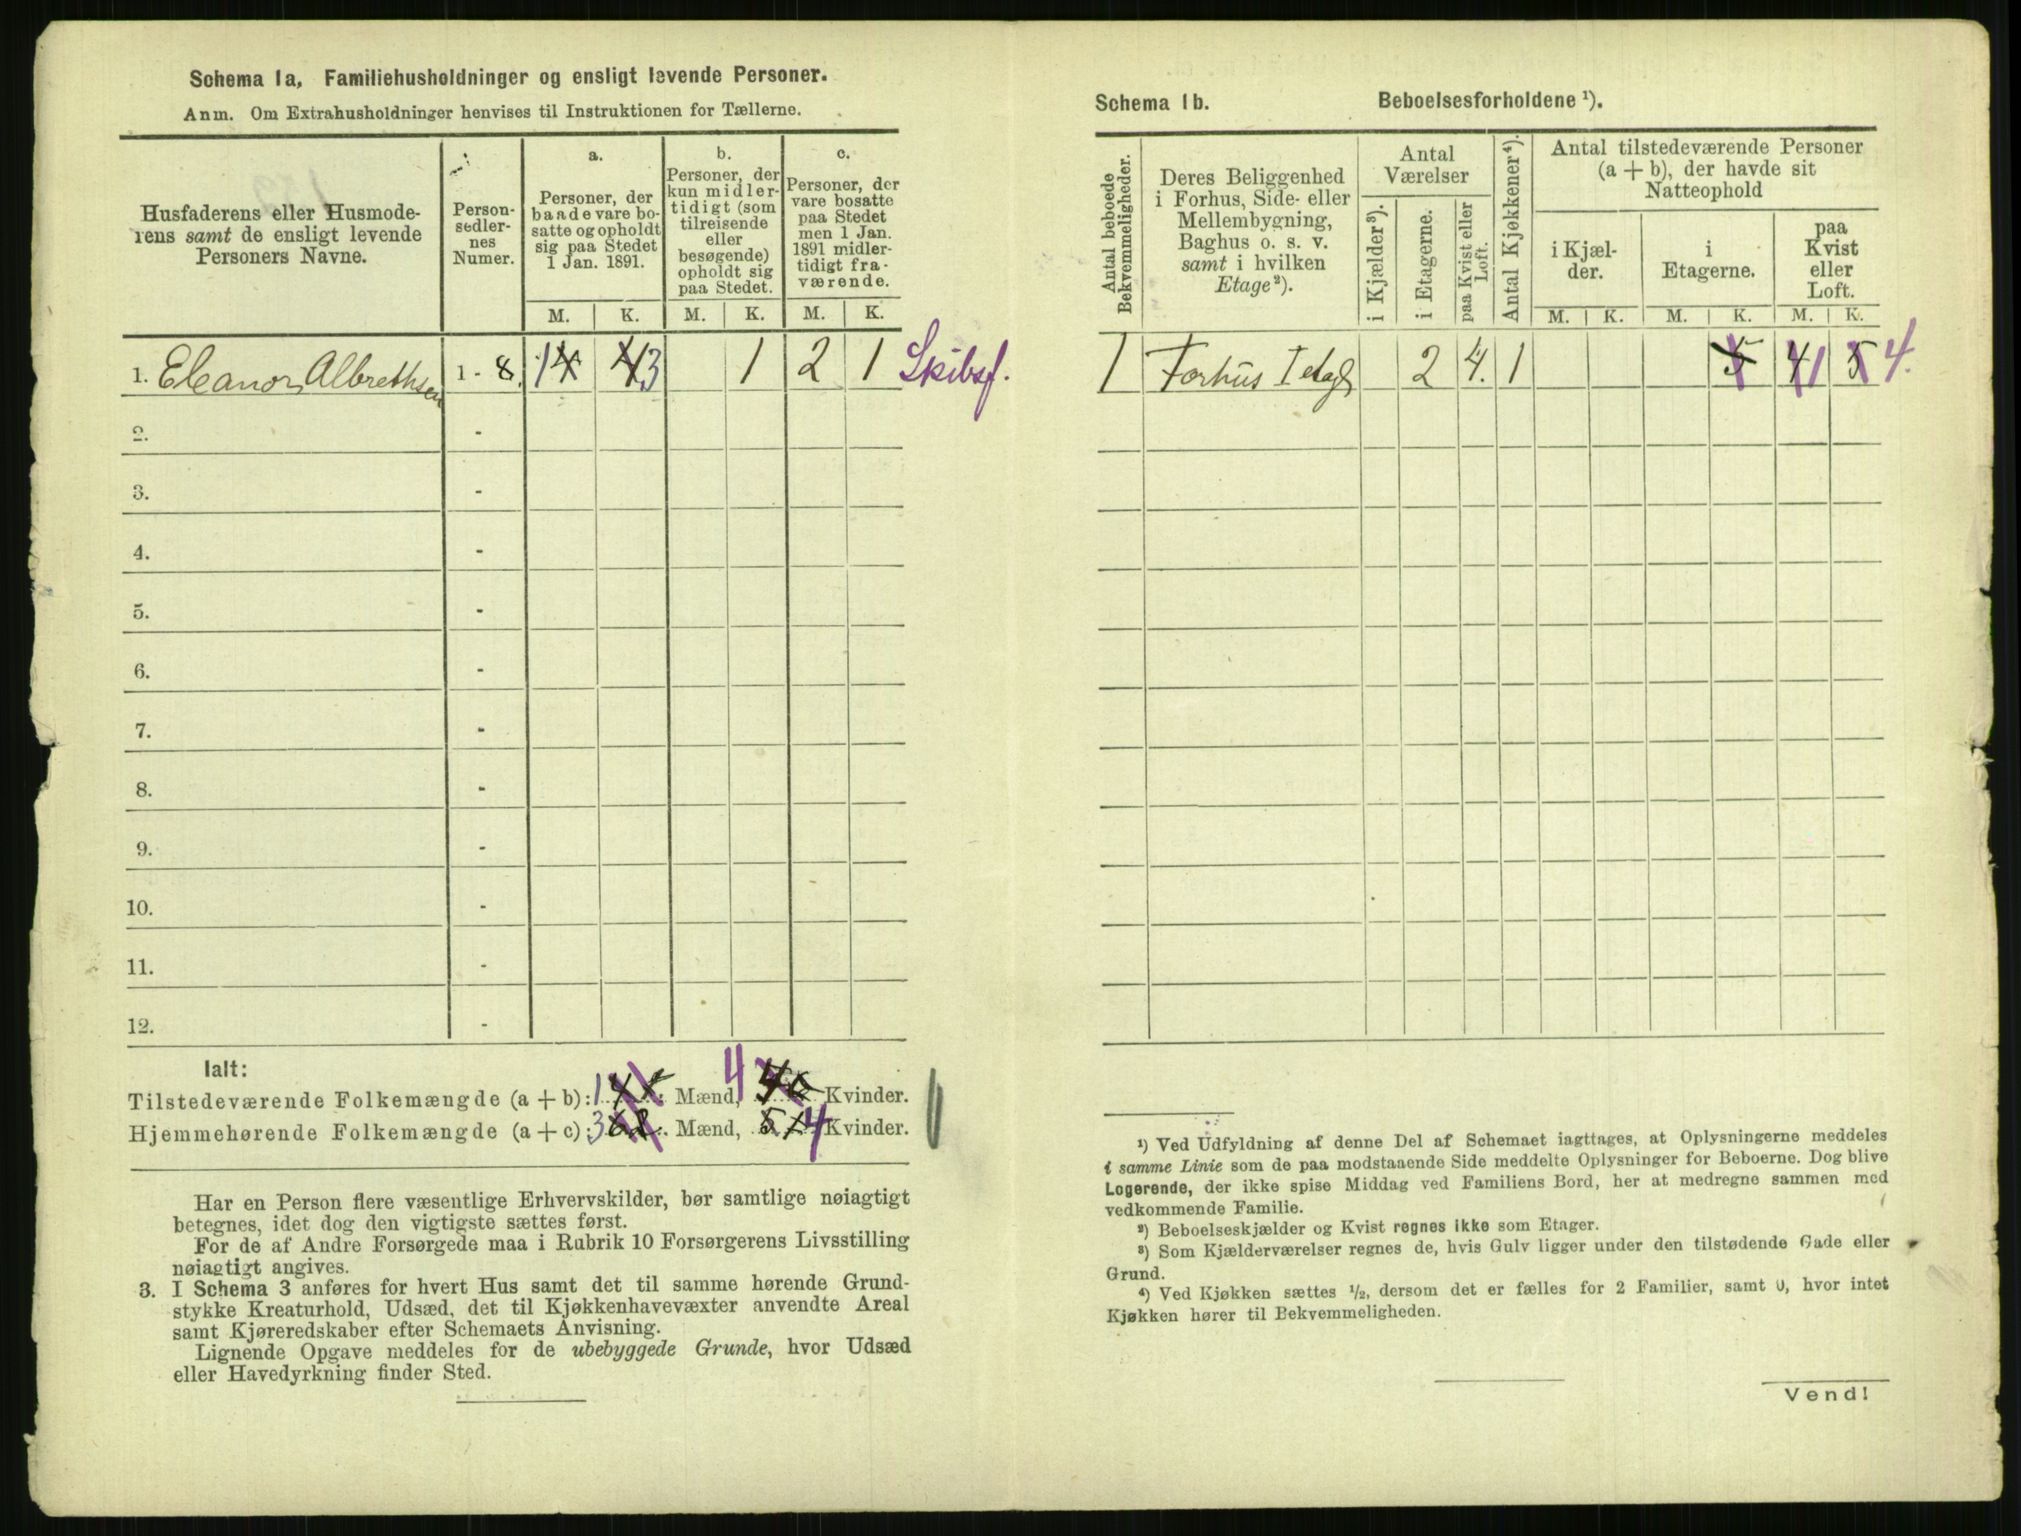 Schema 1a, Familiehusholdninger og ensligt levende Personer.
Anm. Om Extrahusholdninger henvises til Instruktionen for Tællerne.
Husfaderens eller Husmode-
rens samt de ensligt levende
Personers Navne.
Person-
sedler-
nes
Numer.
a.
Personer, der
baade vare bo-
satte og opholdt
sig paa Stedet
1 Jan. 1891.
b.
Personer, der
kun midler-
tidigt (som
tilreisende
eller
besøgende)
opholdt sig
paa Stedet.
c.
Personer, der
vare bosatte
paa Stedet
men 1 Jan.
1891 midler-
tidigt fra-
værende.
M. K. M. K. M. K.
1. Eleanor Albrethsen 1 - 8. 1 4 4 3 1 2 1 Skibsf.
2. -
3. -
4. -
5. -
6. -
7. -
8. -
9. -
10. -
11. -
12. -
Ialt:
Tilstedeværende Folkemængde (a + b): 1 Mænd, 4 Kvinder.
Hjemmehørende Folkemængde (a + c): 3 Mænd, 5 4 Kvinder.
Har en Person flere væsentlige Erhvervskilder, bør samtlige nøiagtigt
betegnes, idet dog den vigtigste sættes først.
For de af Andre Forsørgede maa i Rubrik 10 Forsørgerens Livsstilling
nøiagtigt angives.
3. I Schema 3 anføres for hvert Hus samt det til samme hørende Grund-
stykke Kreaturhold, Udsæd, det til Kjøkkenhavevæxter anvendte Areal
samt Kjøreredskaber efter Schemaets Anvisning.
Lignende Opgave meddeles for de ubebyggede Grunde, hvor Udsæd
eller Havedyrkning finder Sted.
Schema 1b. Beboelsesforholdene ¹).
Antal beboede
Bekvemmeligheder.
Deres Beliggenhed
i Forhus, Side- eller
Mellembygning,
Baghus o. s. v.
samt i hvilken
Etage²).
Antal
Værelser
i Kjælder³).
i Etagerne.
paa Kvist eller
Loft.
Antal Kjøkkener⁴).
Antal tilstedeværende Personer
(a + b), der havde sit
Natteophold
i Kjæl-
der.
i
Etagerne.
paa
Kvist
eller
Loft.
M. K. M. K. M. K.
1 Forhus I etage 2 4. 1 5 4 1 5 4.
¹) Ved Udfyldning af denne Del af Schemaet iagttages, at Oplysningerne meddeles
i samme Linie som de paa modstaaende Side meddelte Oplysninger for Beboerne. Dog blive
Logerende, der ikke spise Middag ved Familiens Bord, her at medregne sammen med
vedkommende Familie.
²) Beboelseskjælder og Kvist regnes ikke som Etager.
³) Som Kjælderværelser regnes de, hvis Gulv ligger under den tilstødende Gade eller
Grund.
⁴) Ved Kjøkken sættes ½, dersom det er fælles for 2 Familier, samt 0, hvor intet
Kjøkken hører til Bekvemmeligheden.
Vend!